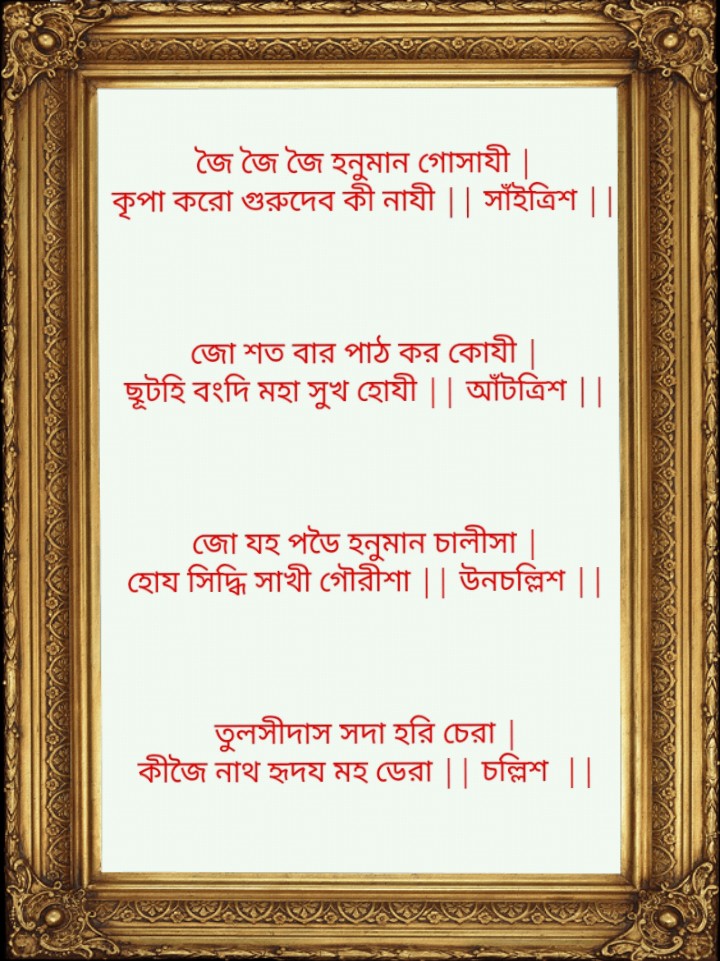 জৈ জৈ জৈ হনুমান গোসাযী |
কৃপা করো গুরুদেব কী নাযী || সাঁইত্রিশ ||
জো শত বার পাঠ কর কোযী |
ছূটহি বংদি মহা সুখ হোযী || আঁটত্রিশ ||
জো যহ পডৈ হনুমান চালীসা |
হোয সিদ্ধি সাখী গৌরীশা || উনচল্লিশ ||
তুলসীদাস সদা হরি চেরা |
কীজৈ নাথ হৃদয মহ ডেরা || চল্লিশ ||